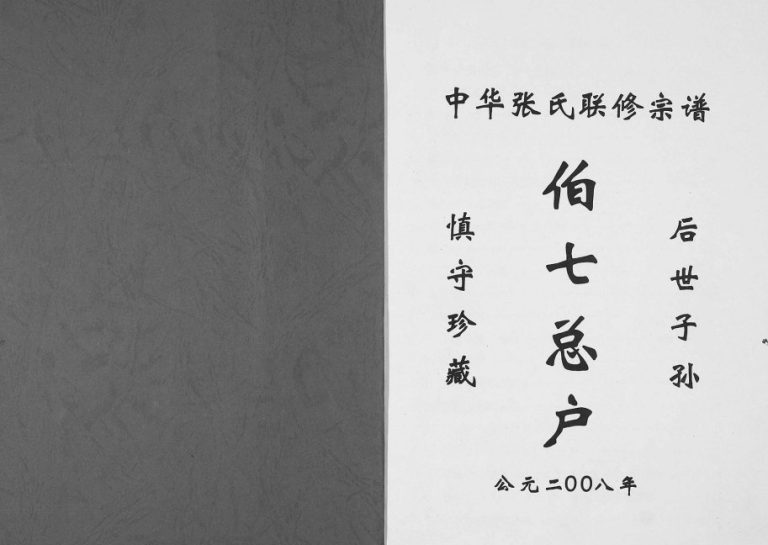 中华张氏联修宗谱
后世子孙
伯七总户
慎守珍藏
公元二00八年